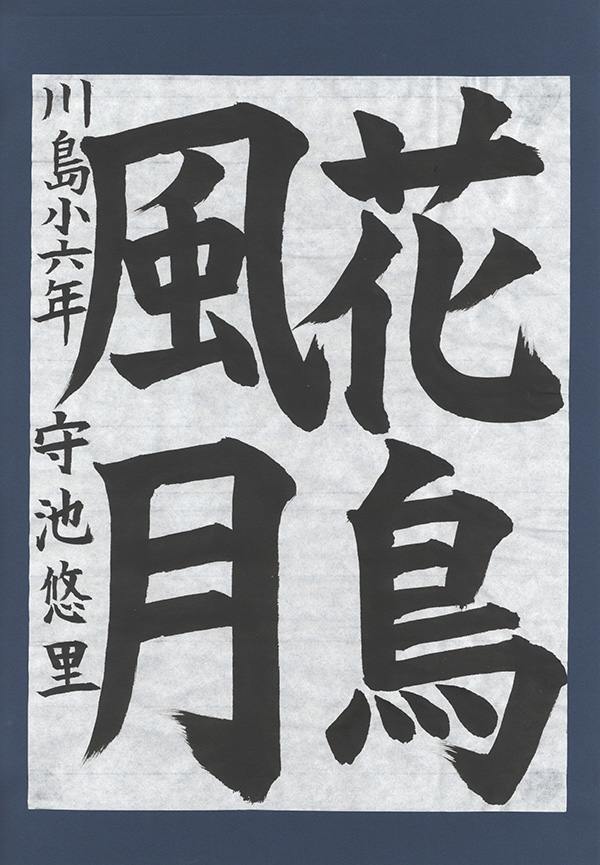 花鳥
風月
川島小六年 守池悠里